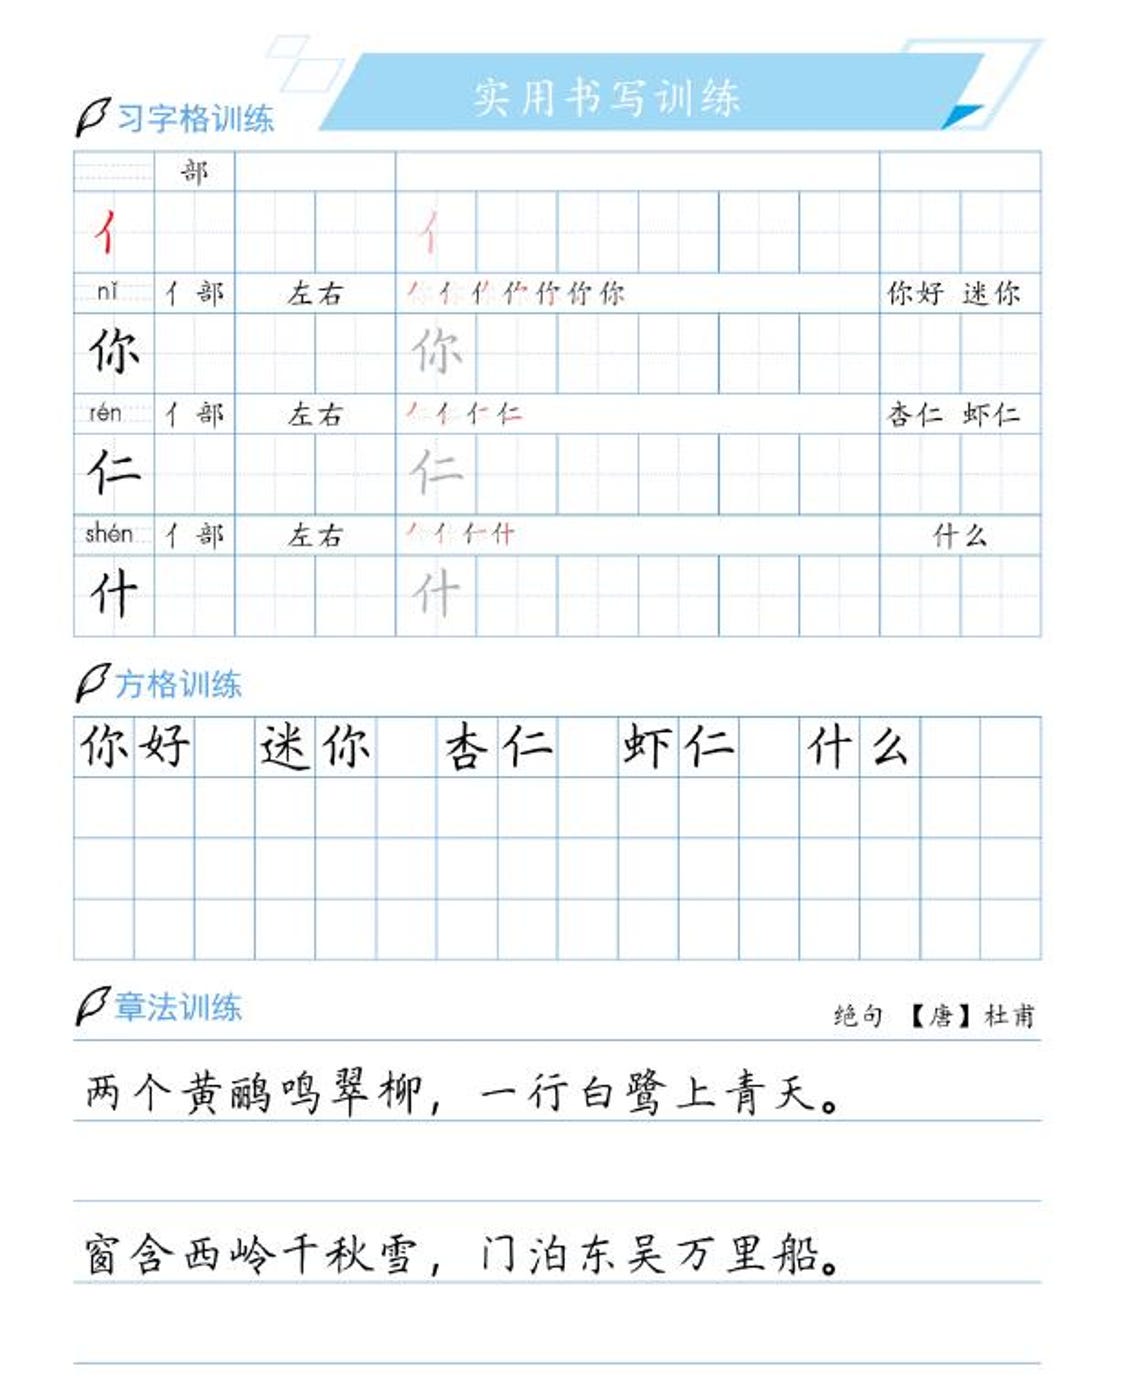 实用书写训练
习字格训练
部
亻 亻
nǐ 亻部 左右 你 你好 迷你
你 你
rén 亻部 左右 仁 杏仁 虾仁
仁 仁
shén 亻部 左右 什 什么
什 什
方格训练
你好 迷你 杏仁 虾仁 什么
章法训练
绝句 【唐】杜甫
两个黄鹂鸣翠柳，一行白鹭上青天。
窗含西岭千秋雪，门泊东吴万里船。